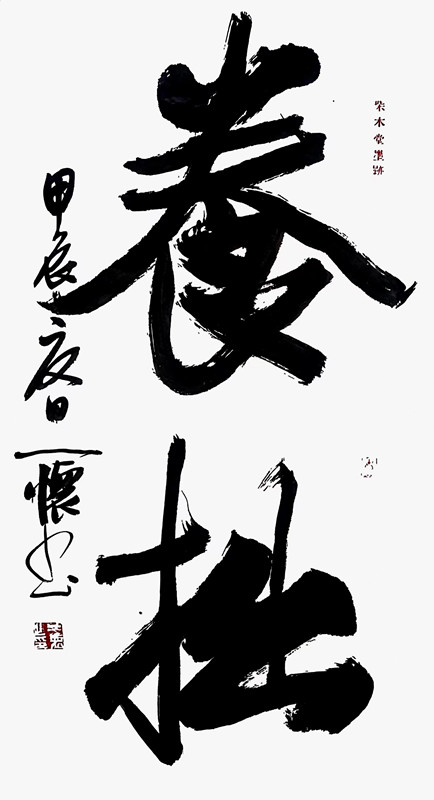 柴木堂墨跡
養拙
甲辰夏日一懷書